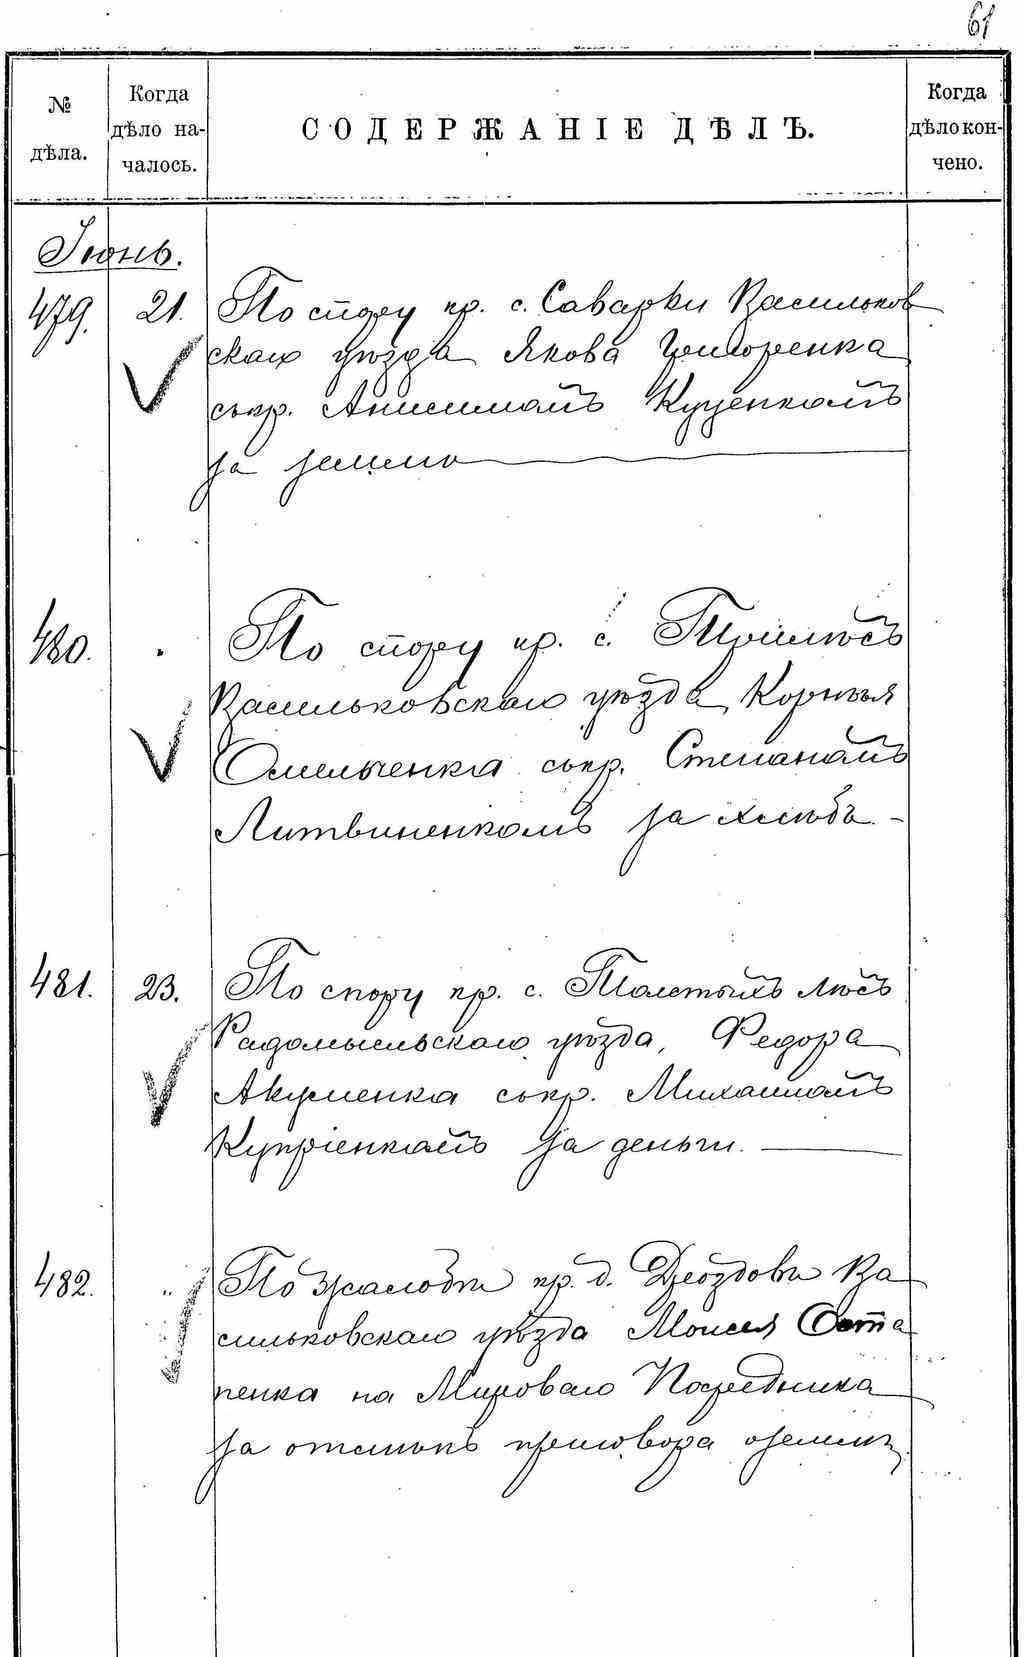 61
№ дѣла.
Когда дѣло на-
чалось.
СОДЕРЖАНІЕ ДѢЛЪ.
Когда дѣло кон-
чено.
Іюнь.
479. 21. По спору кр. с. Саварки Васильков
скаго уѣзда Якова Григоренка
съ кр. Анисимомъ Куценкомъ
за землю
480. По спору кр. с.
Васильковскаго уѣзда, Корнѣя
Омельченка съ кр. Степаномъ
Литвиненкомъ за хлѣбъ.
481. 23. По спору кр. с. Толстыхъ Лѣсъ
Радомысльскаго уѣзда, Федора
Акуменка съ кр. Михаиломъ
Купріенкомъ за деньги.
482. " По жалобѣ кр. д. Дроздовки Ва
сильковскаго уѣзда Моисея Оста
пенка на Мироваго Посредника
за отмѣнъ приговора о землѣ